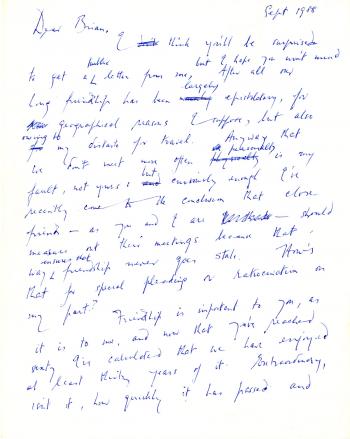 Sept 1988
Dear Brian,
I think you'll be surprised
public but I hope you won't mind
to get a letter from me, After all our
largely
long friendship has been epistolary, for
geographical reasons I suppose, but also
owing to Anyway that
my distaste for travel.
we don't meet more often personally is my
but
fault, not yours: curiously enough I've
recently come to the conclusion that close
friends — as you and I are — should
measure out their meetings because that
ensures that
way friendship never goes stale. How's
that for special pleading or ratiocination on
my part? Friendship is important to you, as
it is to me, and now that you've reached
I've calculated that we have enjoyed
at least thirty years of it. Extraordinary,
isn't it, how quickly it has passed and